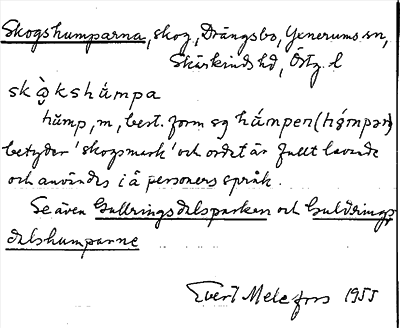 Skogshumparna, skog, Drängsbo, Yxnerums sn,
Skärkinds hd, Östg. l
skò̥kshámpa
hùmp, m, best. form sg hámpen (hámpən)
betyder 'skogsmark' och ordet är fullt levande
och användes i ä personers språk.
Se även Gullringsdelsparken och Gulöringsdelshumparne
Evert Melefors 1955